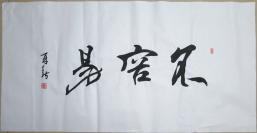 不容易